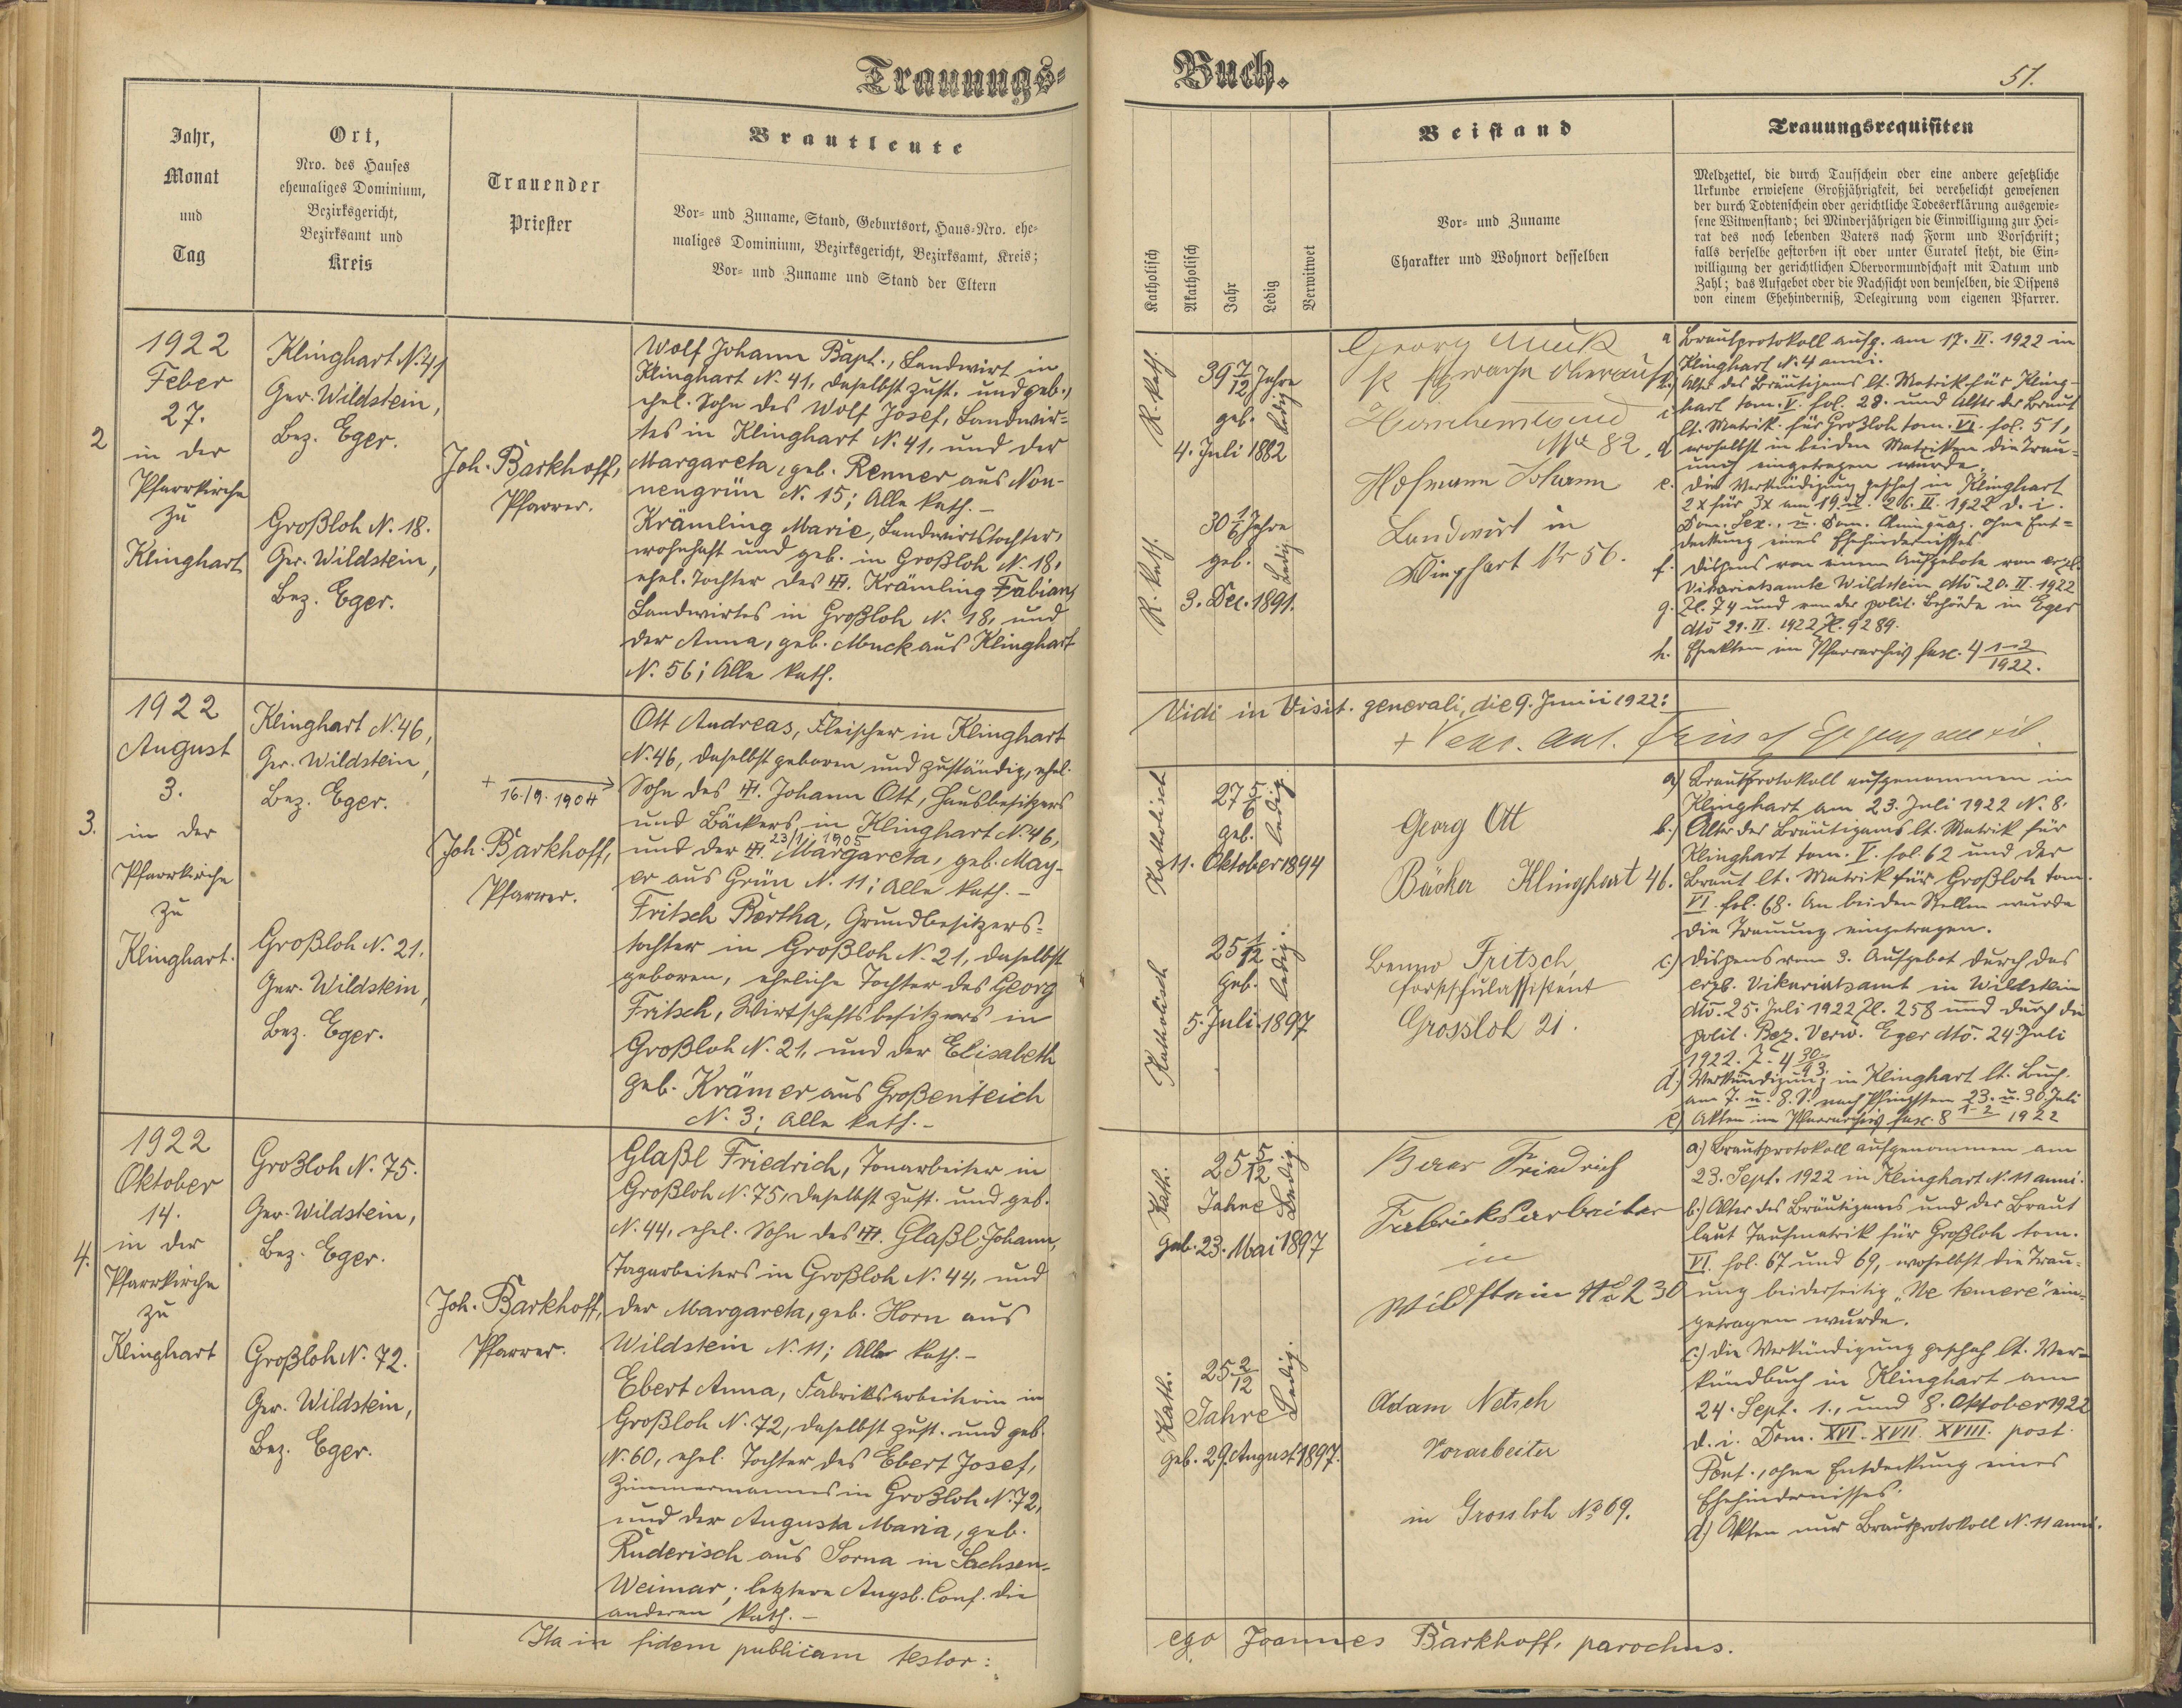 Trauungs-
Jahr,
Monat
und
Tag
Ort,
Nro. des Hauses
ehemaliges Dominium,
Bezirksgericht,
Bezirksamt und
Kreis
Trauender
Priester
Brautleute
Vor- und Zuname, Stand, Geburtsort, Haus-Nro. ehe-
maliges Dominium, Bezirksgericht, Bezirksamt, Kreis;
Vor- und Zuname und Stand der Eltern
2
1922
Feber
27.
in der
Pfarrkirche
zu
Klinghart
Klinghart N. 41
Ger. Wildstein,
Bez. Eger.
Großloh N. 18.
Ger. Wildstein,
Bez. Eger.
Joh. Barkhoff,
Pfarrer.
Wolf Johann Bapt., Landwirt in
Klinghart N. 41, daselbst zust. und geb.,
ehel. Sohn des Wolf Josef, Landwir-
tes in Klinghart N. 41, und der
Margareta, geb. Renner aus Non-
nengrün N. 15; Alle kath. –
Krämling Marie, Landwirtstochter,
wohnhaft und geb. in Großloh N. 18,
ehel. Tochter des Krämling Fabian,
Landwirtes in Großloh N. 18, und
der Anna, geb. Muck aus Klinghart
N. 56; Alle kath.
3.
1922
August
3.
in der
Pfarrkirche
zu
Klinghart.
Klinghart N. 46,
Ger. Wildstein,
Bez. Eger.
Großloh N. 21.
Ger. Wildstein,
Bez. Eger.
+ 16./9. 1904
Joh. Barkhoff,
Pfarrer.
Ott Andreas, Fleischer in Klinghart
N. 46, daselbst geboren und zuständig, ehel.
Sohn des Johann Ott, Hausbesitzers
und Bäckers in Klinghart N. 46,
23/1. 1905
und der Margareta, geb. May-
er aus Grün N. 11; Alle kath. –
Fritsch Bertha, Grundbesitzers-
tochter in Großloh N. 21, daselbst
geboren, eheliche Tochter des Georg
Fritsch, Wirtschaftsbesitzers in
Großloh N. 21, und der Elisabeth
geb. Krämer aus Großenteich
N. 3; Alle kath. –
4.
1922
Oktober
14.
in der
Pfarrkirche
zu
Klinghart
Großloh N. 75.
Ger. Wildstein,
Bez. Eger.
Großloh N. 72.
Ger. Wildstein,
Bez. Eger.
Joh. Barkhoff,
Pfarrer.
Glaßl Friedrich, Tonarbeiter in
Großloh N. 75, daselbst zust. und geb.
N. 44, ehel. Sohn des Glaßl Johann,
Tagarbeiters in Großloh N. 44, und
der Margareta, geb. Horn aus
Wildstein N. 11; Alle kath. –
Ebert Anna, Fabriksarbeiterin in
Großloh N. 72, daselbst zust. und geb.
N. 60, ehel. Tochter des Ebert Josef,
Zimmermannes in Großloh N. 72,
und der Augusta Maria, geb.
Ruderisch aus Sorna in Sachsen-
Weimar; letztere Augsb. Conf. die
anderen kath. –
Ita in fidem publicam testor:
Buch.
51.
Katholisch
Akatholisch
Jahr
Ledig
Verwitwet
Beistand
Vor- und Zuname
Charakter und Wohnort desselben
Trauungsrequisiten
Meldzettel, die durch Taufschein oder eine andere gesetzliche
Urkunde erwiesene Großjährigkeit, bei verehelicht gewesenen
der durch Todtenschein oder gerichtliche Todeserklärung ausgewie-
sene Witwenstand; bei Minderjährigen die Einwilligung zur Hei-
rat des noch lebenden Vaters nach Form und Vorschrift;
falls derselbe gestorben ist oder unter Curatel steht, die Ein-
willigung der gerichtlichen Obervormundschaft mit Datum und
Zahl; das Aufgebot oder die Nachsicht von demselben, die Dispens
von einem Ehehinderniß, Delegirung vom eigenen Pfarrer.
R. kath.
39 7/12 Jahre
geb. ledig
4. Juli 1882
R. kath.
30 1/6 Jahre
geb. Ledig
3. Dec. 1891.
Georg Muck
No 82
Hofmann Johann
Landwirt in
Klinghart Nr 56.
a Brautprotokoll aufg. am 17. II. 1922 in
Klinghart N. 4 anni.
Alter des Bräutigams lt. Matrik für Kling-
hart tom. V. fol. 28. und Alter der Braut
lt. Matrik für Großloh tom. VI. fol. 51,
d woselbst in beiden Matriken die Trau-
ung eingetragen wurde.
e. Die Verkündigung geschah in Klinghart
2x für 3x am 19. u. 26. II. 1922 d. i.
Dom. Sex., u. Dom. Quinquag. ohne Ent-
deckung eines Ehehindernisses
f. Dispens von einem Aufgebote vom erzb.
Vikariatsamte Wildstein dto. 20. II. 1922
g. Zl. 74 und von der polit. Behörde in Eger
dto 21. II. 1922 Zl. 9289.
h. Eheakten im Pfarrarchiv fasc. 4 1-2/1922.
Vidi in Visit. generali, die 9. Junii 1922:
Katholisch
27 5/6
geb. ledig.
11. Oktober 1894
Katholisch
25 1/12
geb. ledig.
5. Juli 1897
Georg Ott
Bäcker Klinghart 46.
Benno Fritsch,
Forstschulassistent
Grossloh 21.
a) Brautprotokoll aufgenommen in
Klinghart am 23. Juli 1922 N. 8.
b.) Alter des Bräutigams lt. Matrik für
Klinghart tom. V. fol. 62 und der
Braut lt. Matrik für Großloh tom.
VI. fol. 68. An beiden Stellen wurde
die Trauung eingetragen.
c.) Dispens vom 3. Aufgebot durch das
erzb. Vikariatsamt in Wildstein
dto. 25. Juli 1922 Zl. 258 und durch die
polit. Bez. Verw. Eger dto. 24 Juli
1922. Z. 4 30/93.
d.) Verkündigung in Klinghart lt. Buch.
am 7. u. 8. S. nach Pfingsten 23. u. 30. Juli
e) Akten im Pfarrarchiv fasc. 8 1-2 1922
Kath.
25 5/12
Jahre Ledig
geb. 23. Mai 1897
Kath.
25 2/12
Jahre Ledig.
geb. 29. August 1897.
Friedrich
Fabricksarbeiter
in
Wildstein No 230
Adam Netsch
Vorarbeiter
in Grossloh No 69.
a) Brautprotokoll aufgenommen am
23. Sept. 1922 in Klinghart N. 11 anni.
b.) Alter des Bräutigams und der Braut
laut Taufmatrik für Großloh tom.
VI. fol. 67 und 69, woselbst die Trau-
ung beiderseitig „Ne temere" ein-
getragen wurde.
c.) Die Verkündigung geschah lt. Ver-
kündbuch in Klinghart am
24. Sept. 1., und 8. Oktober 1922
d. i. Dom. XVI. XVII. XVIII. post
Pent., ohne Entdeckung eines
Ehehindernisses.
d) Akten nur Brautprotokoll N. 11 anni.
ego Joannes Barkhoff, parochus.